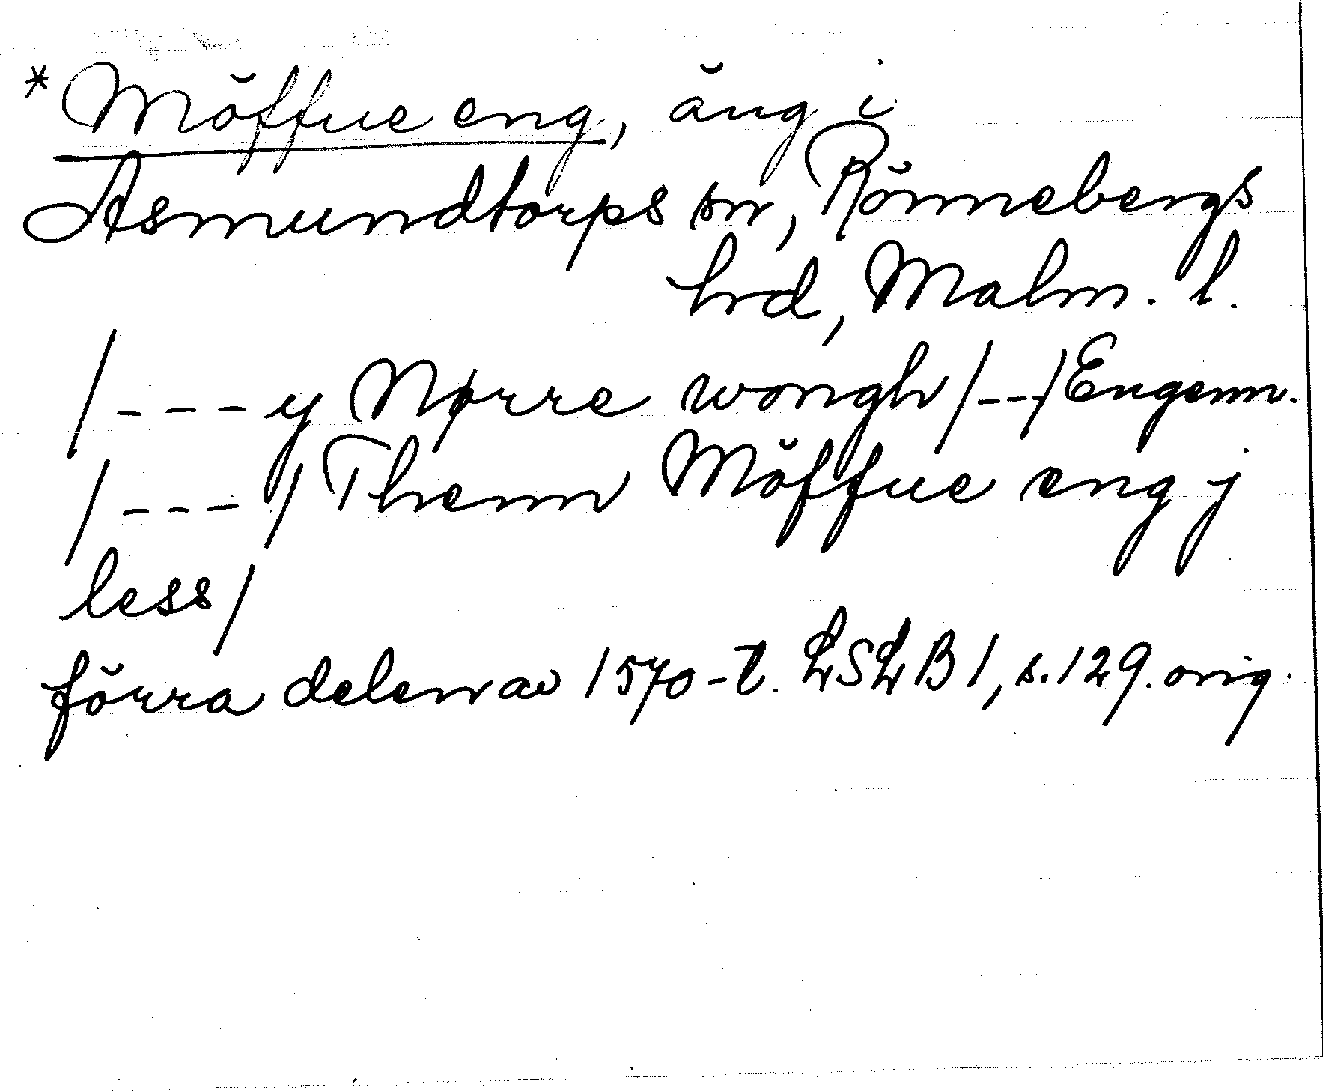 *Möffue eng, äng i
Asmundtorps sn, Rönnebergs
hrd, Malm. l.
/---y Nørre wongh/--/Engenn.
/---/Thenn Möffue eng j
less/
förra delen av 1570-t. LSLB1, s.129. orig.